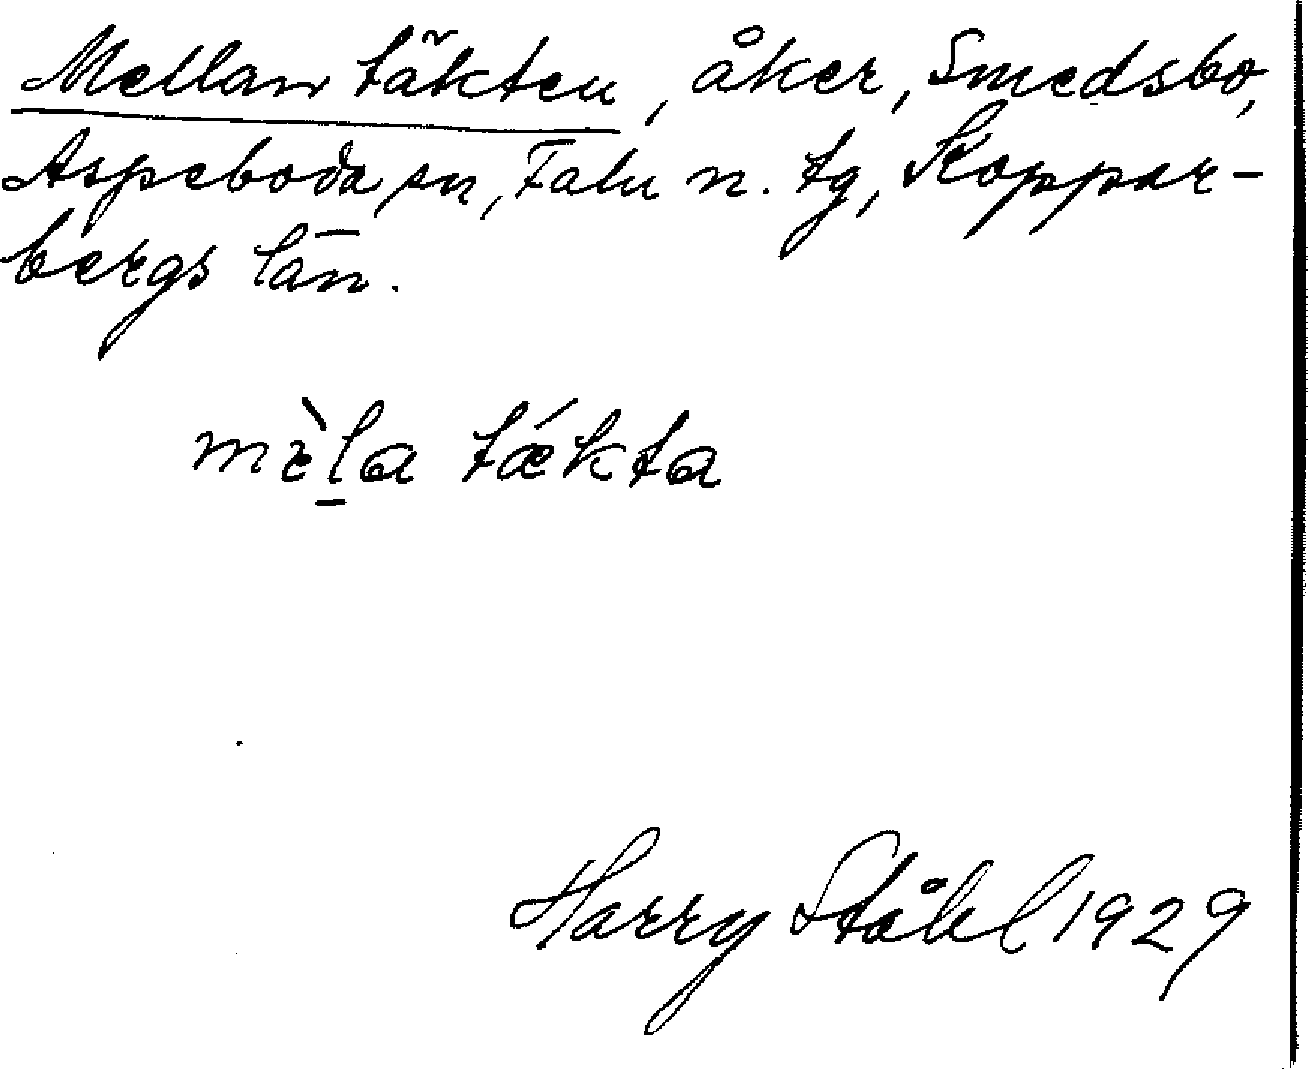 Mellan täkten, åker, Smedsbo,
Aspeboda sn, Falu n. tg, Koppar-
bergs län.
mὲl̠a tǽkta
Harry Ståhl 1929